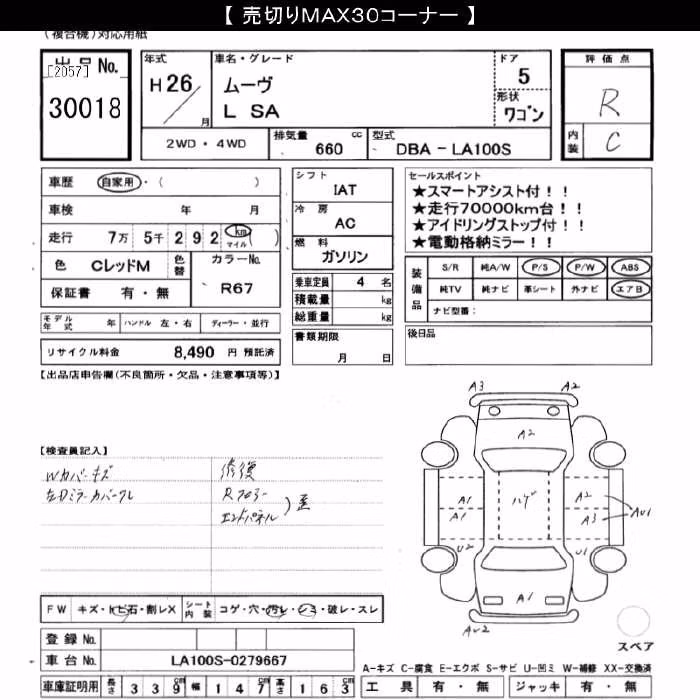 【 売切りMAX30コーナー 】
(複合機)対応用紙
出品No.
[2057]
30018
年式
H26
月
車名・グレード
ムーヴ
L SA
ドア
5
形状
ワゴン
評価点
R
内装
C
2WD・4WD
排気量 cc
660
型式
DBA－LA100S
車歴 自家用・( )
車検 年 月
走行 7万 5千 292 km マイル ( )
色 CレッドM 色替 カラーNo.
保証書 有・無 R67
モデル年式 年 ハンドル 左・右 ディーラー・並行
リサイクル料金 8,490 円 預託済
シフト
IAT
冷房
AC
燃料
ガソリン
乗車定員 4 名
積載量 kg
総重量 kg
書類期限
月 日
セールスポイント
★スマートアシスト付！！
★走行70000km台！！
★アイドリングストップ付！！
★電動格納ミラー！！
装備品
S/R 純A/W P/S P/W ABS
純TV 純ナビ 革シート 外ナビ エアB
ナビ型番：
後日品
【出品店申告欄(不良箇所・欠品・注意事項等)】
【検査員記入】
Wカバーキズ
左Dミラーカバークレ
修復
Rフロアー
エンドパネル
)歪
A3 A2
A2
A1 ハゲ A2
A1 A3 AU1
U2 U1
A1
AU2
スペア
FW キズ・トビ石・割レX シート内装 コゲ・穴・汚レ・シミ・破レ・スレ
登録No.
車台No. LA100S-0279667
車庫証明用 長さ 339cm 幅 147cm 高さ 163cm
A-キズ C-腐食 E-エクボ S-サビ U-凹ミ W-補修 XX-交換済
工具 有・無 ジャッキ 有・無